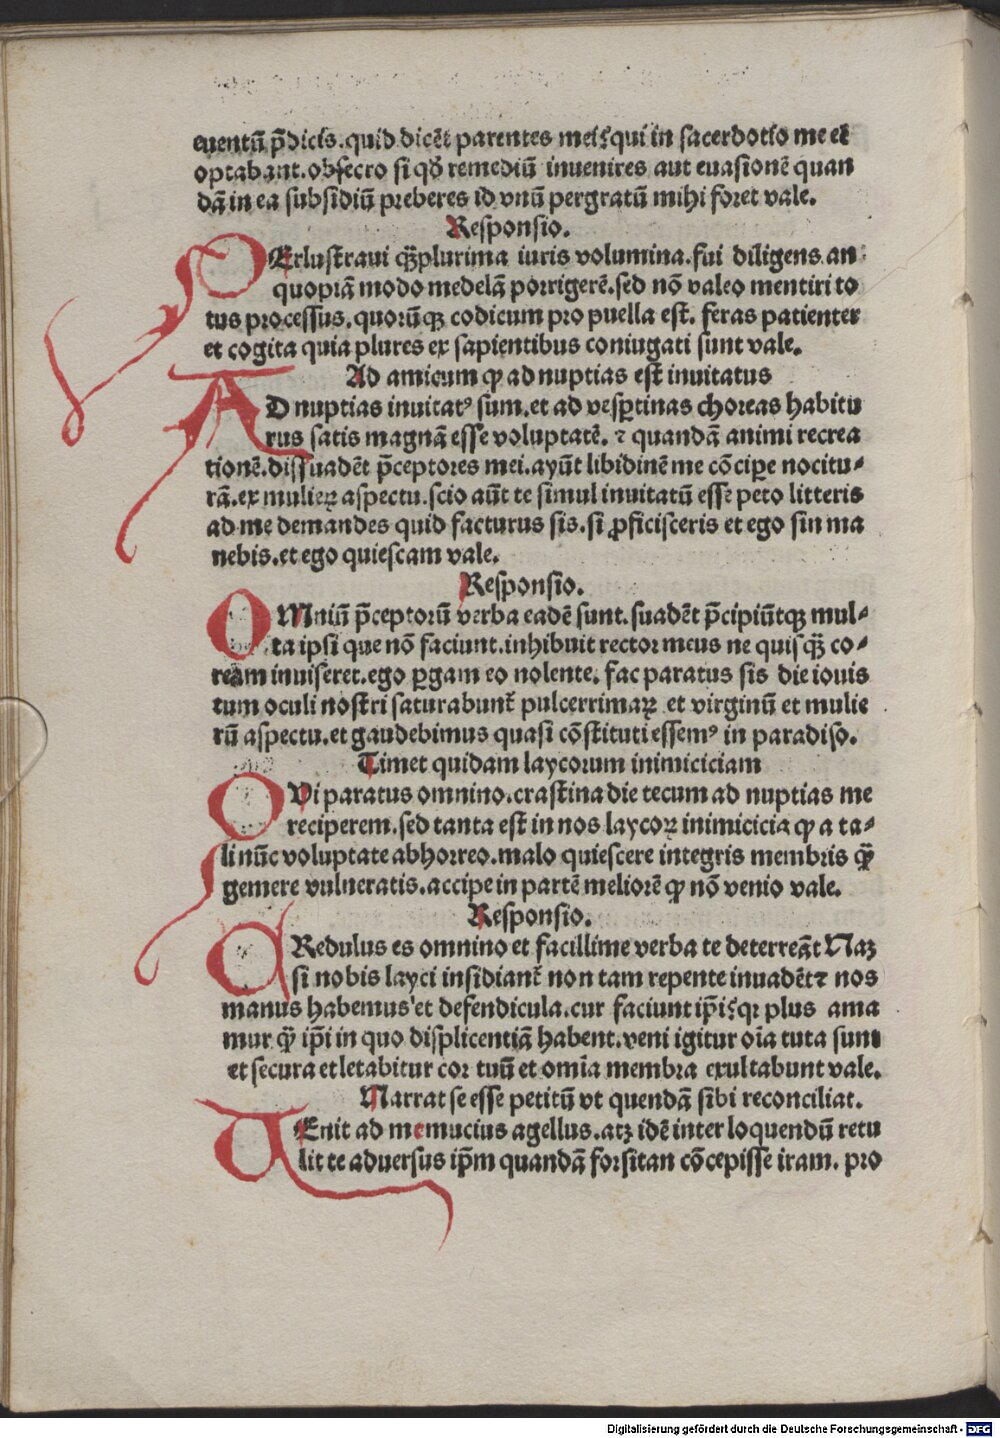 euentū p̄dicis.quid dicēt parentes mei?qui in sacerdotio me eē
optabant.obsecro si qd̓ remediū inuenires aut euasionē quan
dā in ea subsidiū preberes id vnū pergratū mihi foret vale.
Responsio.
PErlustraui q̄ꝫplurima iuris volumina.fui diligens.an
quopiā modo medelā porrigerē.sed nō valeo mentiri to
tus processus.quorūqꝫ codicum pro puella est. feras patienter
et cogita quia plures ex sapientibus coniugati sunt vale.
Ad amicum ꝙ ad nuptias est inuitatus
AD nuptias inuitatꝰ sum.et ad vesꝑtinas choreas habitu
rus satis magnā esse voluptatē. ⁊ quandā animi recrea
tionē.dissuadēt p̄ceptores mei.ayūt libidinē me cōciꝑe nocitu⸗
rā.ex mulieꝝ aspectu.scio aūt te simul inuitatū esse peto litteris
ad me demandes quid facturus sis.si ꝓficisceris et ego sin ma
nebis.et ego quiescam vale.
Responsio.
OMniū p̄ceptorū verba eadē sunt.suadēt p̄cipiūtqꝫ mul⸗
ta ipsi que nō faciunt.inhibuit rector meus ne quisq̄ꝫ co⸗
ream inuiseret.ego ꝑgam eo nolente. fac paratus sis die iouis
tum oculi nostri saturabunt᷑ pulcerrimaꝝ et virginū et mulie
rū aspectu.et gaudebimus quasi cōstituti essemꝰ in paradiso.
Timet quidam laycorum inimiciciam
QVi paratus omnino.crastina die tecum ad nuptias me
reciperem.sed tanta est in nos laycoꝝ inimicicia ꝙ a ta⸗
li nūc voluptate abhorreo.malo quiescere integris membris q̄ꝫ
gemere vulneratis.accipe in partē meliorē ꝙ nō venio vale.
Responsio.
CRedulus es omnino et facillime verba te deterreāt Naꝫ
si nobis layci insidiant᷑ non tam repente inuadēt⁊ nos
manus habemus et defendicula.cur faciunt ip̄i?qꝛ plus ama
mur q̄ꝫ ip̄i in quo displicentiā habent.veni igitur oīa tuta sunt
et secura et letabitur cor tuū et omīa membra exultabunt vale.
Narrat se esse petitū vt quendā sibi reconciliat.
VEnit ad me mucius agellus.atꝫ idē inter loquendū retu
lit te aduersus ip̄m quandā forsitan cōcepisse iram. pro
Digitalisierung gefördert durch die Deutsche Forschungsgemeinschaft - DFG